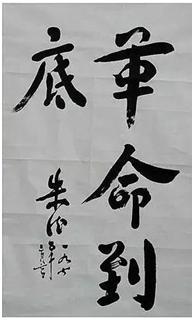 革命到
底
朱德